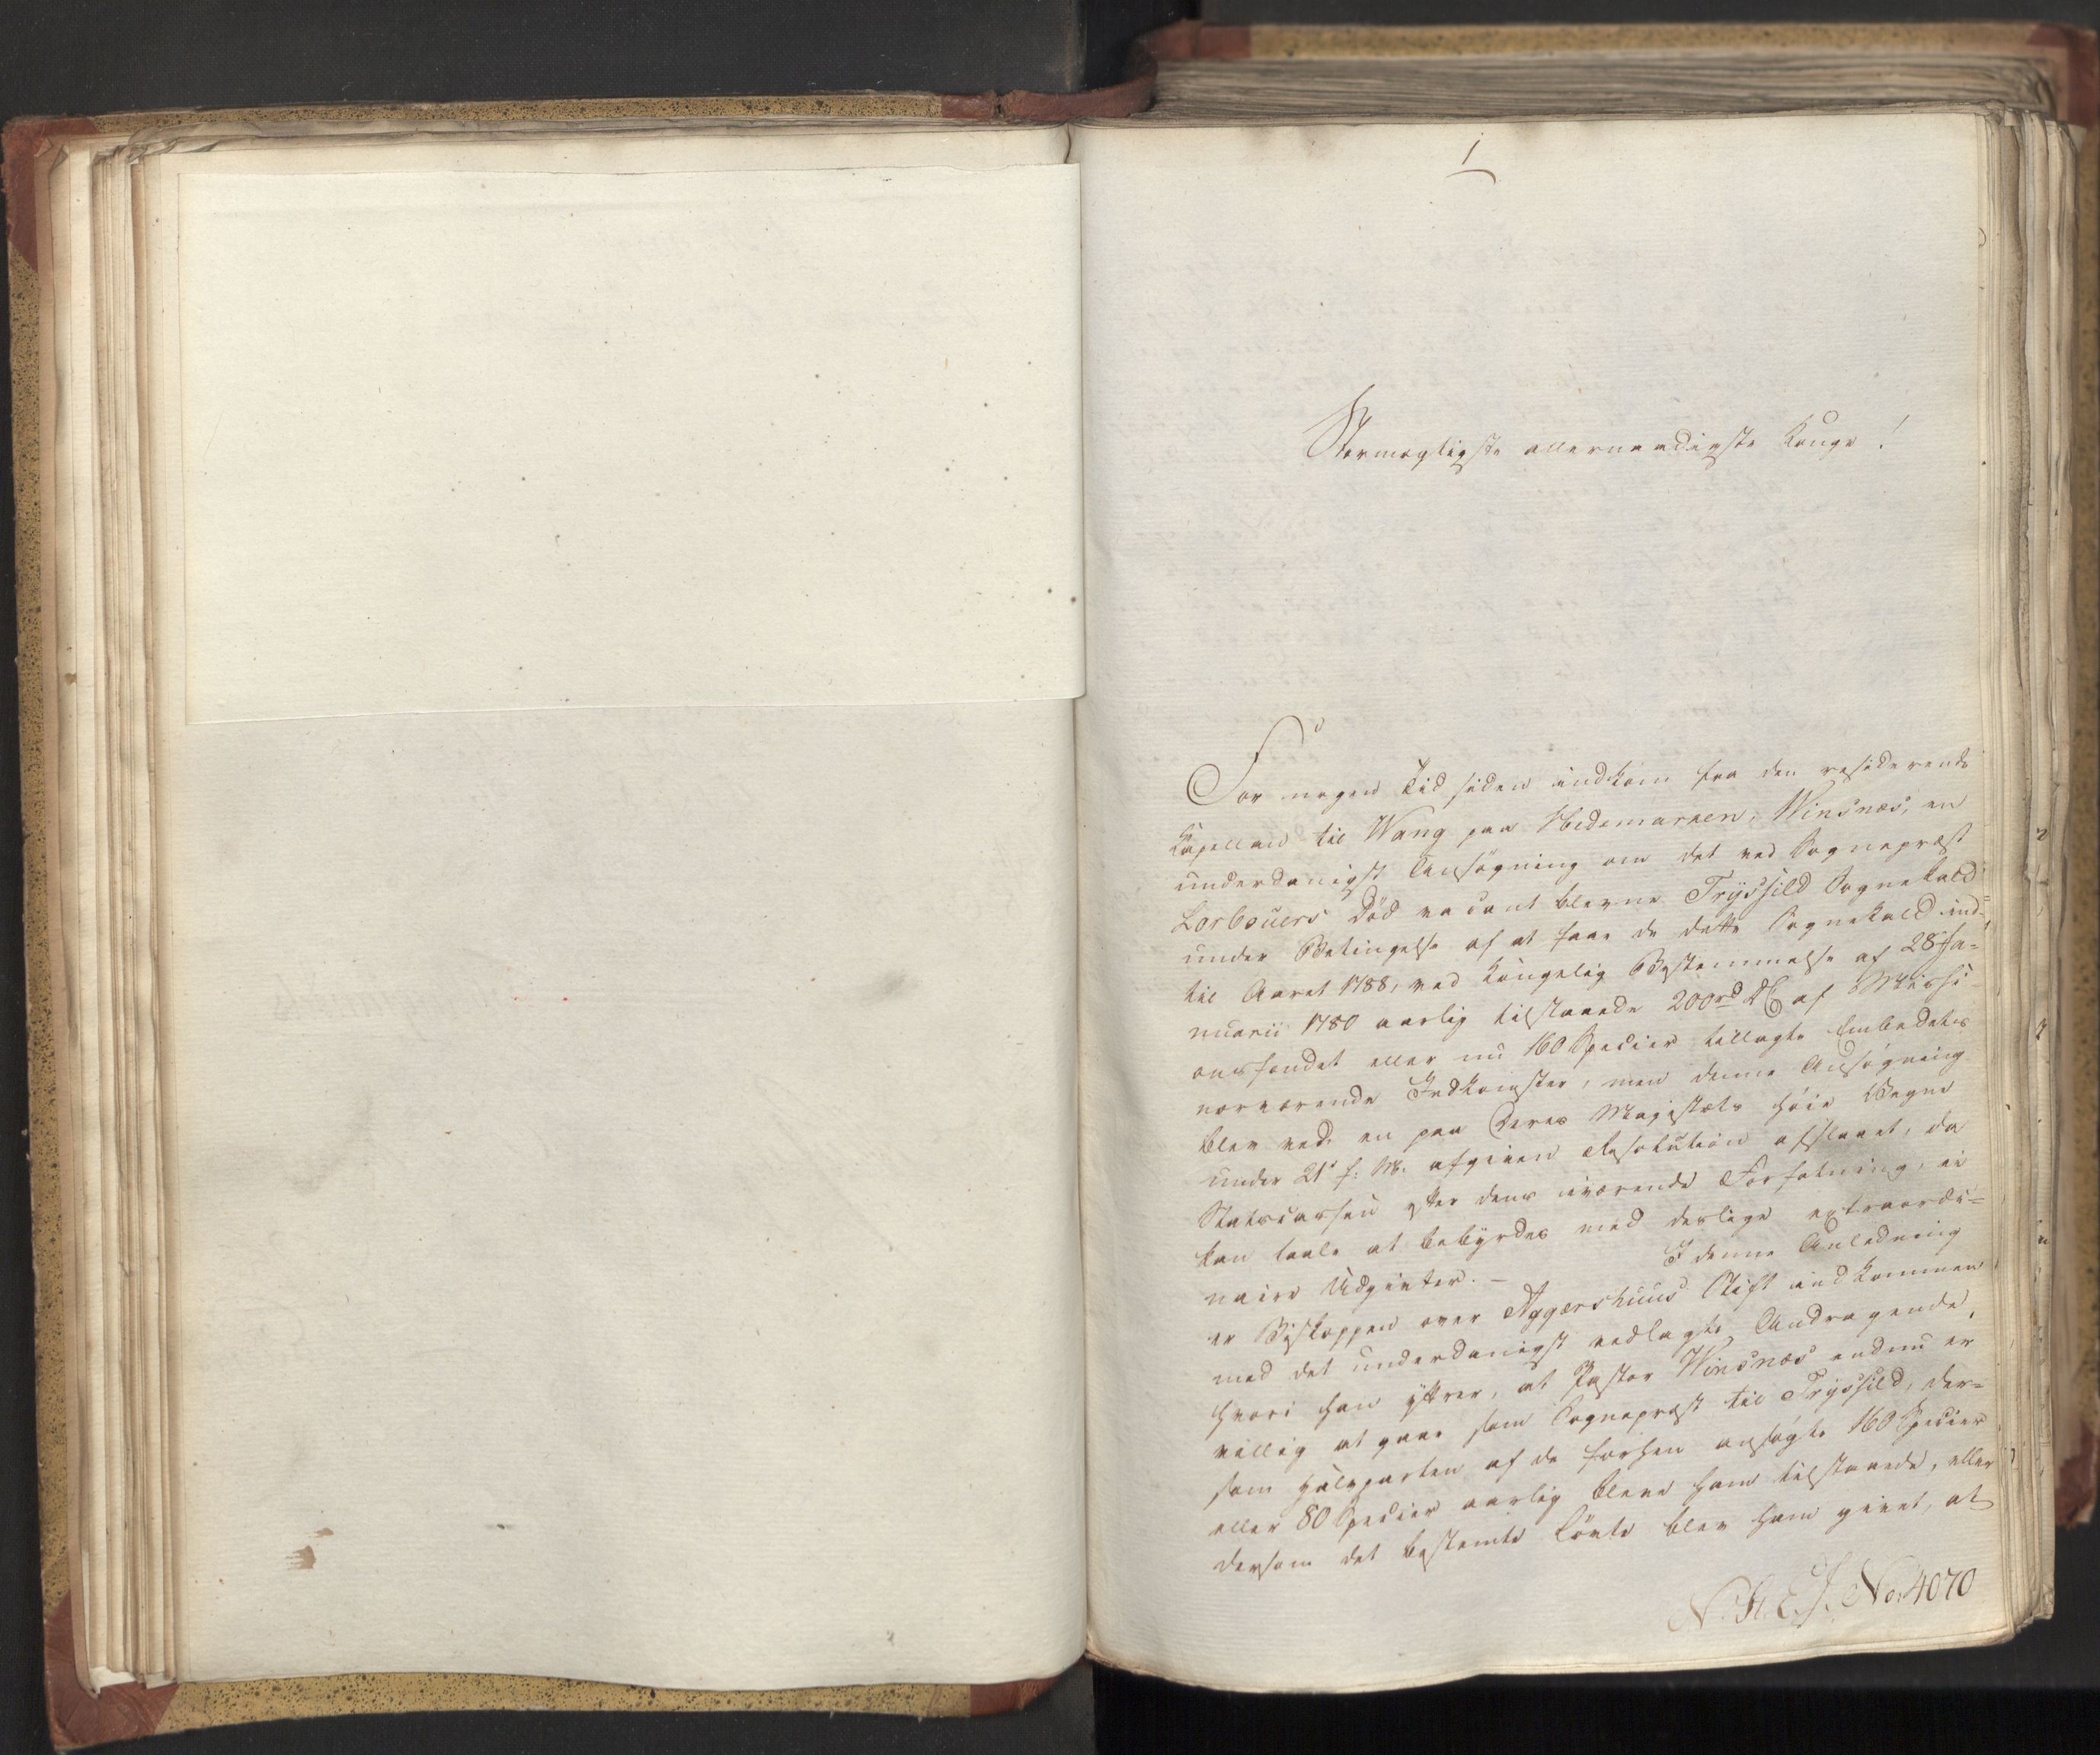 1
Stormægtigste allernaadigste Konge!
For nogen Tid siden indkom fra den residerende
Kapellan til Wang paa Hedemarken, Winsnæs, en
underdanigst Ansøgning om det ved Sognepræst
Lorbouers Død vacant blevne Tryssild Sognekald
under Betingelse af at faae de dette Sognekald ind-
til Aaret 1788, ved kongelig Bestemmelse af 28 Ja-
nuarii 1780 aarlig tilstaaede 200 rd DC af Missi-
onsfondet eller nu 160 Species tillagte Embedets
nærværende Indkomster, men denne Ansøgning
blev ved en paa Deres Majestæts høie Vegne
under 21 f: M: afgiven Resolution afslaaet, da
Statscassen efter dens nuværende Forfatning, ei
kan taale at bebyrdes med deslige extraordi-
naire Udgivter. – I denne Anledning
er Biskoppen over Aggershuus Stift indkommen
med det underdanigst vedlagte Andragende,
hvori han yttrer, at Pastor Winsnæs endnu er
villig at gaae som Sognepræst til Tryssild, der-
som Halvparten af de forhen ansøgte 160 Species
eller 80 Species aarlig bleve ham tilstaaede, eller
dersom det bestemte Løvte blev ham givet, at
N. St. E. J. No: 4070